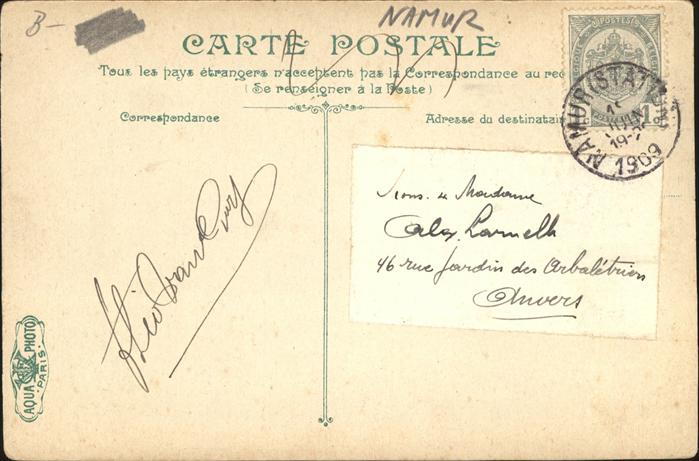 B-
NAMUR
CARTE POSTALE
Tous les pays étrangers n'acceptent pas la Correspondance au rec
(Se renseigner à la Poste)
Correspondance
Adresse du destinatai
POSTES
NAMUR (STAT
JUIN
1909
Mons. & Madame
46 rue Jardin des Arbalétriers
Anvers
AQUA PHOTO
PARIS